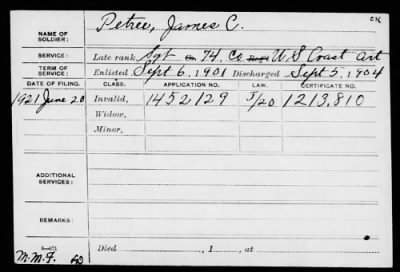 NAME OF SOLDIER: Petree, James C. OK
SERVICE: Late rank, Sgt Co. 74, Co Reg't U S Coast Art
TERM OF SERVICE: Enlisted Sept 6, 1901 Discharged Sept 5, 1904
DATE OF FILING. CLASS. APPLICATION NO. LAW. CERTIFICATE NO.
1921 June 20 Invalid, 1452129 5/20 1213,810
Widow,
Minor,
ADDITIONAL SERVICES:
REMARKS:
Died , 1 , at
M.M.F.